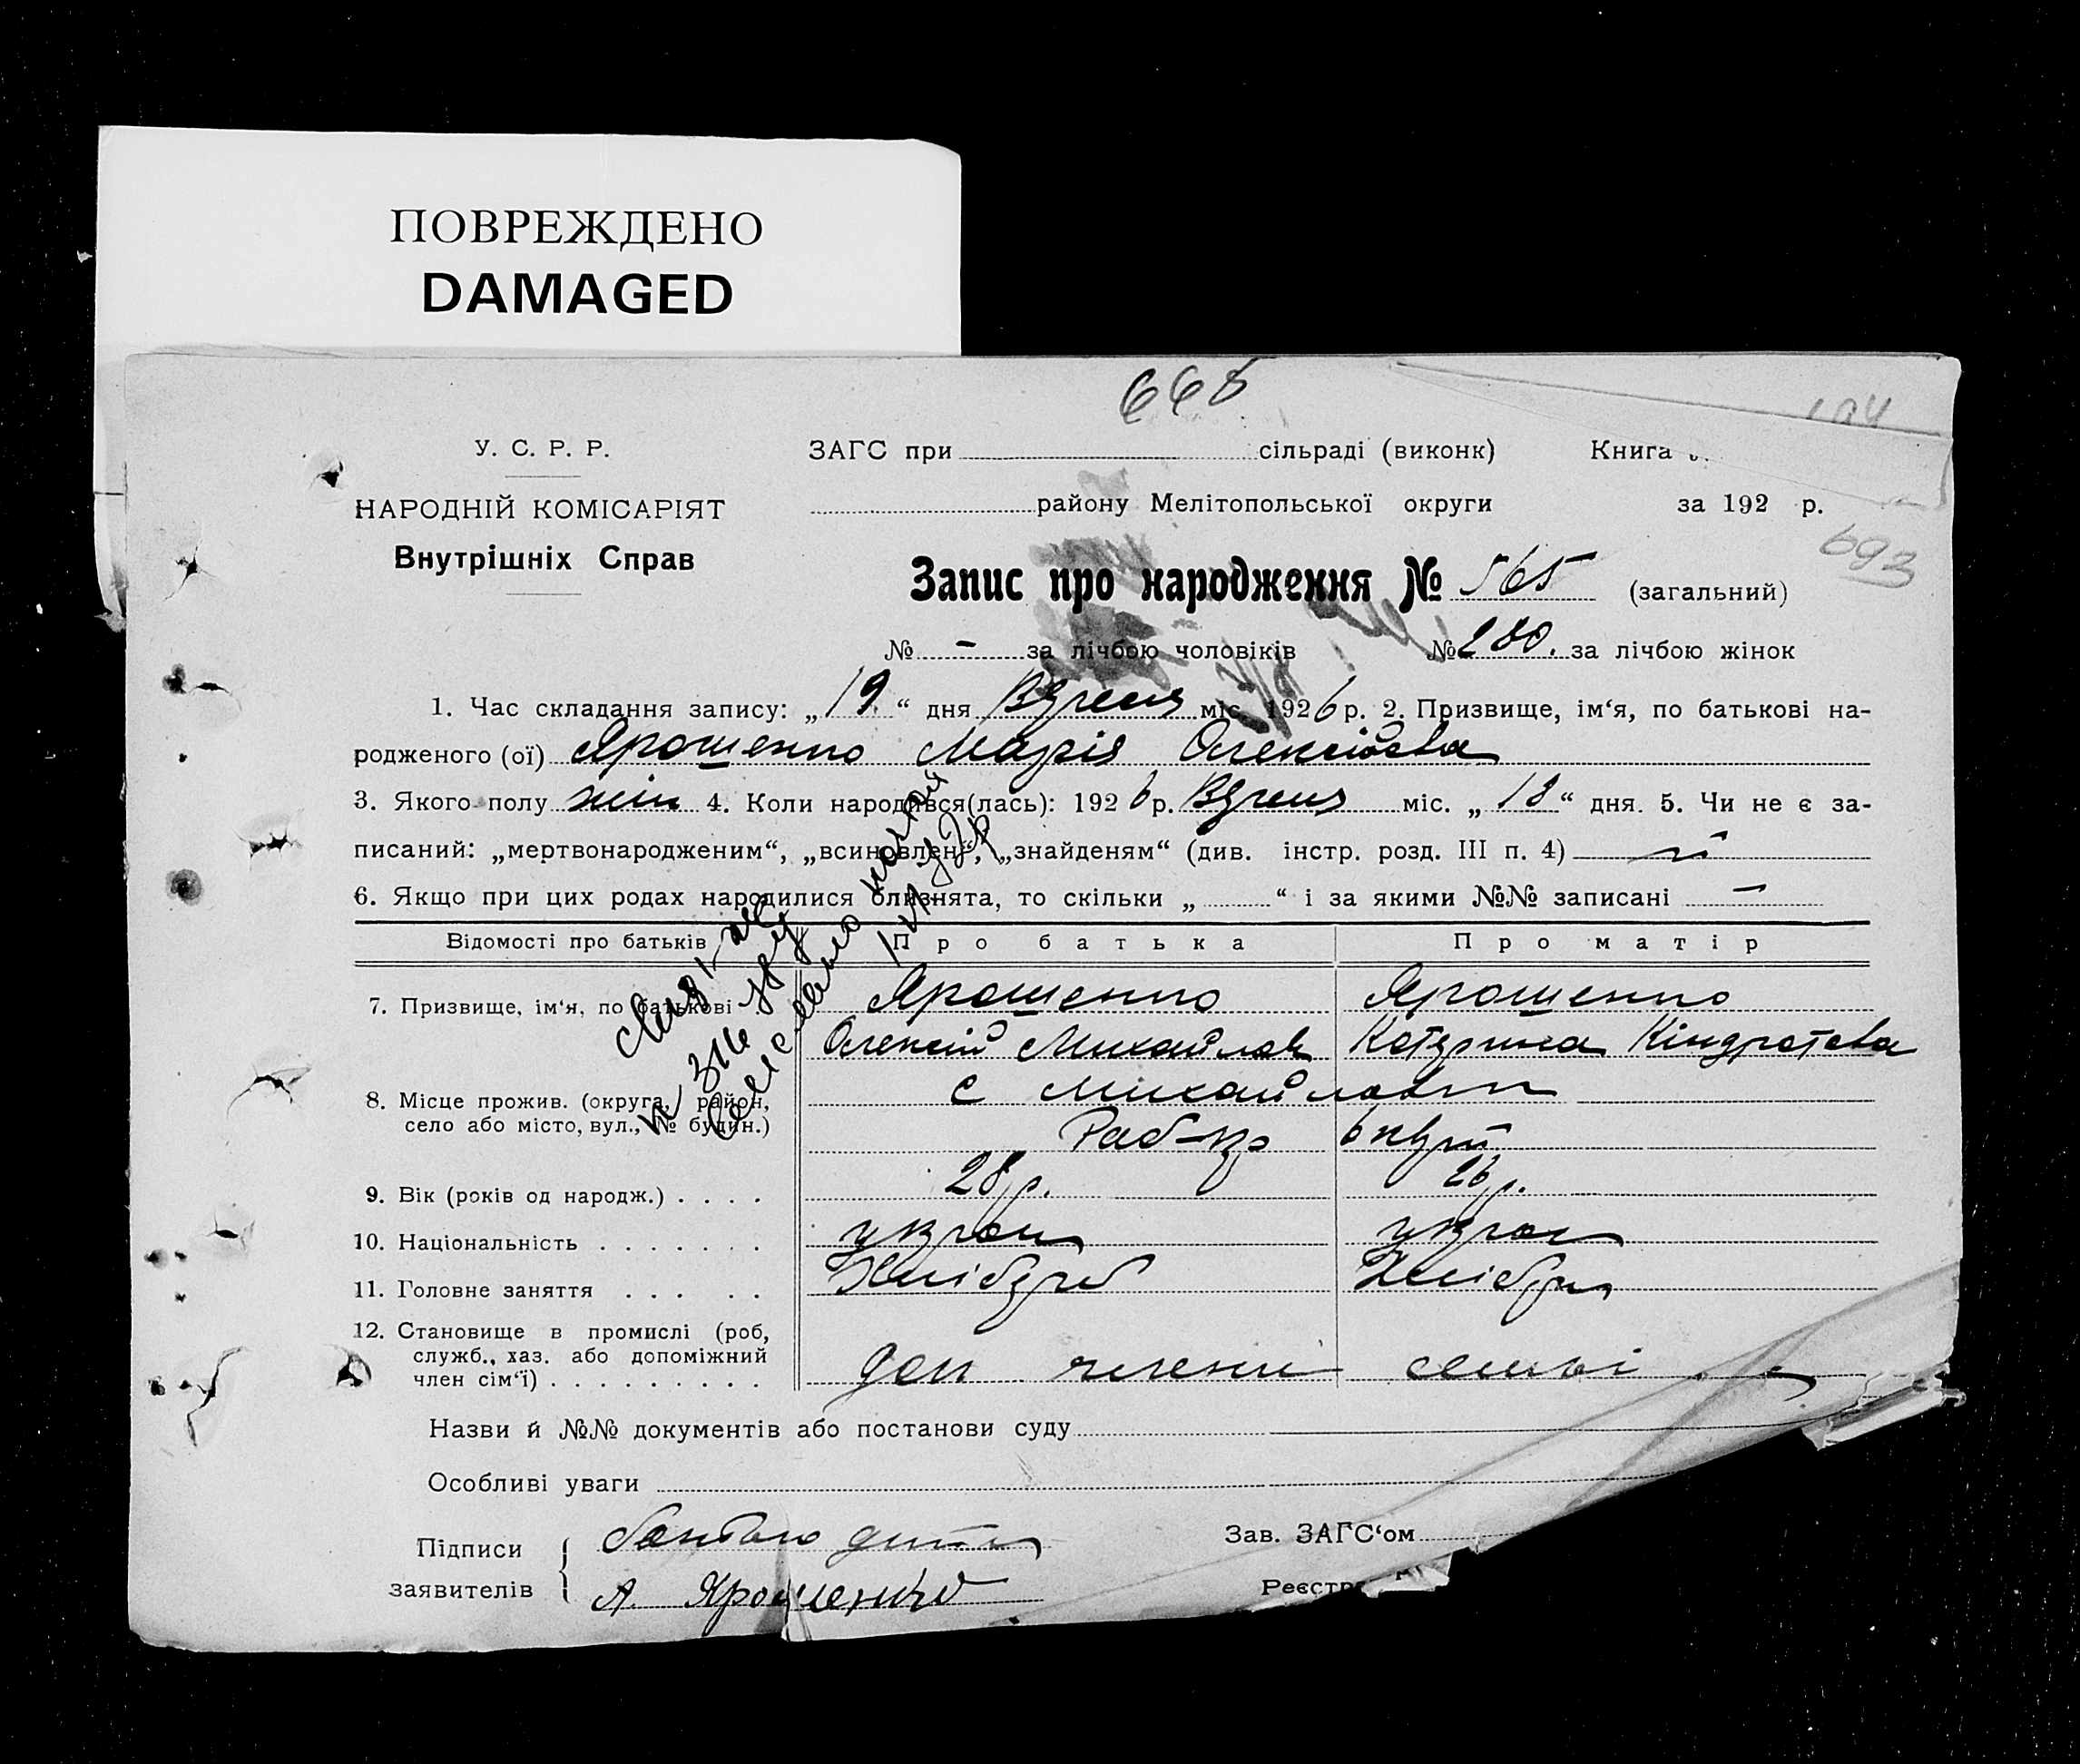 ПОВРЕЖДЕНО
DAMAGED
668
У. С. Р. Р.
НАРОДНІЙ КОМІСАРІЯТ
Внутрішніх Справ
ЗАГС при сільраді (виконк) Книга
району Мелітопольської округи за 192 р.
693
Запис про народження № 565 (загальний)
№ - за лічбою чоловіків № 280. за лічбою жінок
1. Час складання запису: „19“ дня Вересня міс. 1926 р. 2. Призвище, ім‘я, по батькові на-
родженого (ої) Ярошенко Марія Олексійовна
3. Якого полу жін 4. Коли народився(лась): 1926 р. Вересня міс. „18“ дня. 5. Чи не є за-
писаний: „мертвонародженим“, „всиновлен“, „знайденям“ (див. інстр. розд. III п. 4)
6. Якщо при цих родах народилися близнята, то скільки „ “ і за якими №№ записані —
Відомості про батьків Про батька Про матір
7. Призвище, ім‘я, по батькові Ярошенко Ярошенко
Олексій Михайлов Катерина Кіндратовна
8. Місце прожив. (округа, район, с Михайловка
село або місто, вул., № будин.)
9. Вік (років од народж.) . . . . 28 р. 26 р.
10. Національність . . . . . . . украин украин
11. Головне заняття . . . . . Хлібороб
12. Становище в промислі (роб,
служб., хаз. або допоміжний
член сім‘ї) . . . . . . . . . доп члени семьі
Назви й №№ документів або постанови суду
Особливі уваги
Підписи
заявителів А. Ярошенко
Зав. ЗАГС‘ом